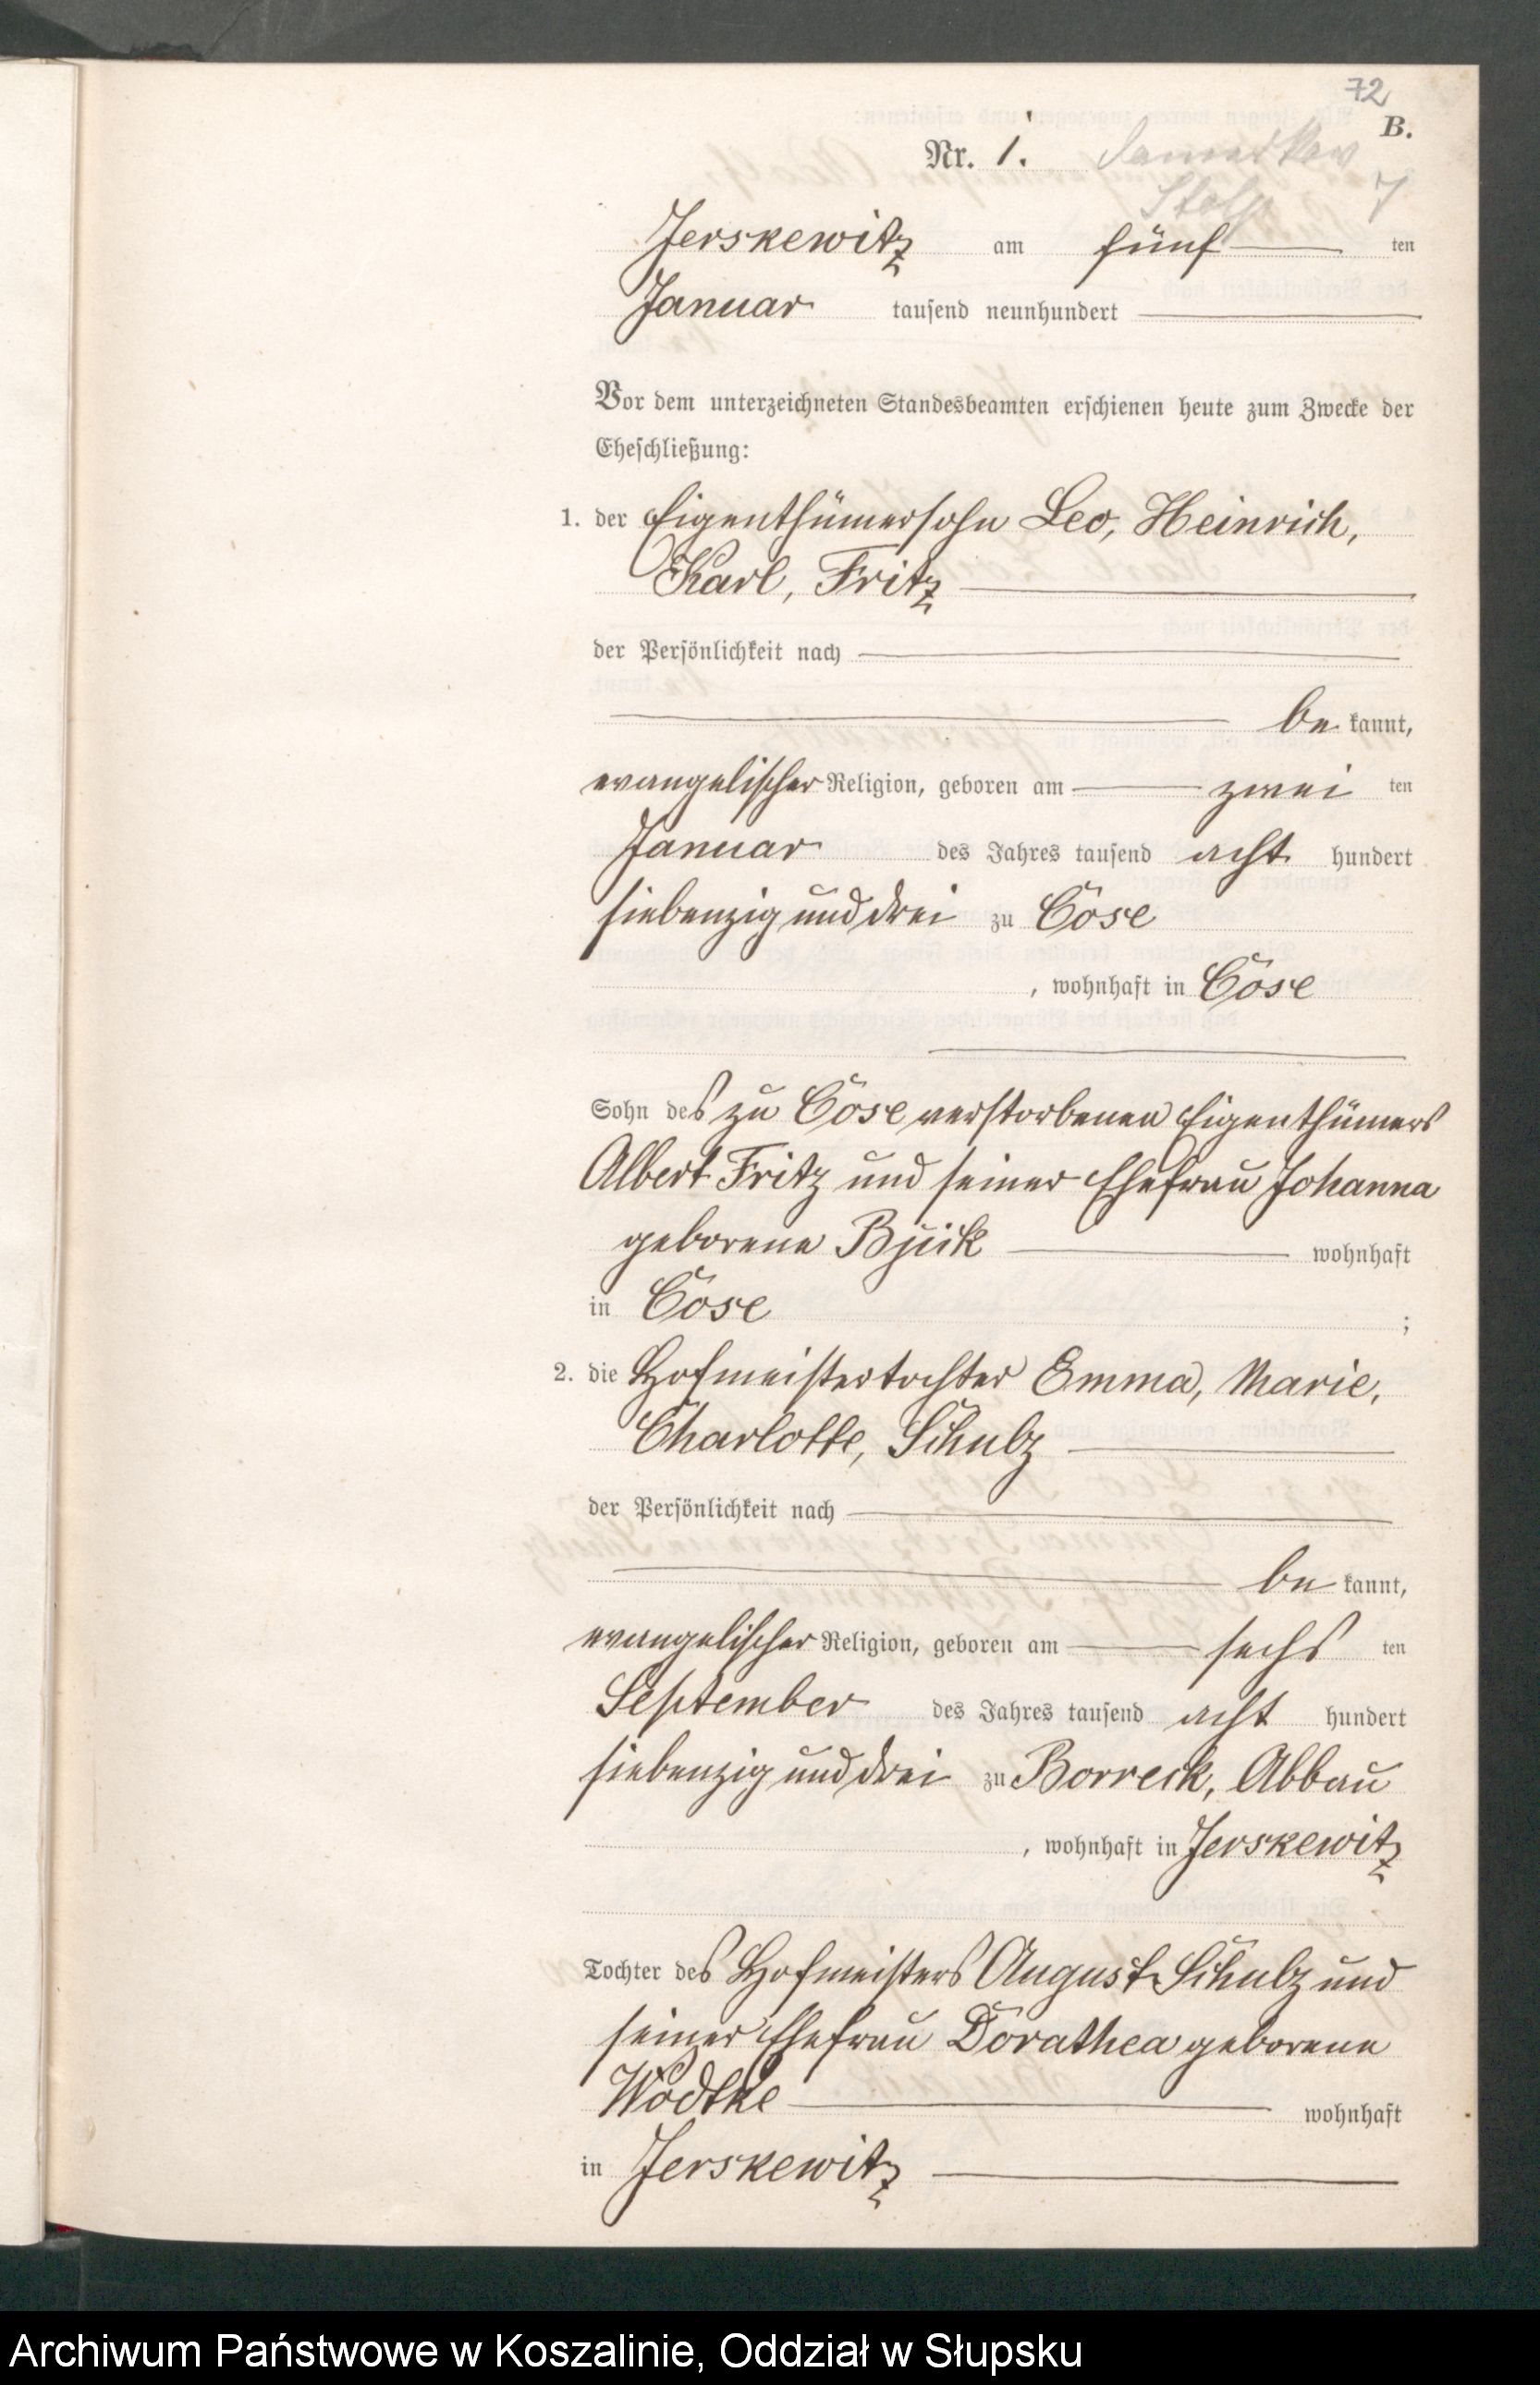 72
B.
Nr. 1.
Stolp 7
Jerskewitz am fünf ten
Januar tausend neunhundert
Vor dem unterzeichneten Standesbeamten erschienen heute zum Zwecke der
Eheschließung:
1. der Eigenthümersohn Leo, Heinrich,
Karl, Fritz
der Persönlichkeit nach
be kannt,
evangelischer Religion, geboren am zwei ten
Januar des Jahres tausend acht hundert
siebenzig und drei zu Cose
, wohnhaft in Cose
Sohn des zu Cose verstorbenen Eigenthümers
Albert Fritz und seiner Ehefrau Johanna
geborene wohnhaft
in Cose ;
2. die Hofmeistertochter Emma, Marie,
Charlotte, Schulz
der Persönlichkeit nach
be kannt,
evangelischer Religion, geboren am sechs ten
September des Jahres tausend acht hundert
siebenzig und drei zu Borreck, Abbau
, wohnhaft in Jerskewitz
Tochter des Hofmeisters August Schulz und
seiner Ehefrau Dorathea geborene
Wodtke wohnhaft
in Jerskewitz
Archiwum Państwowe w Koszalinie, Oddział w Słupsku